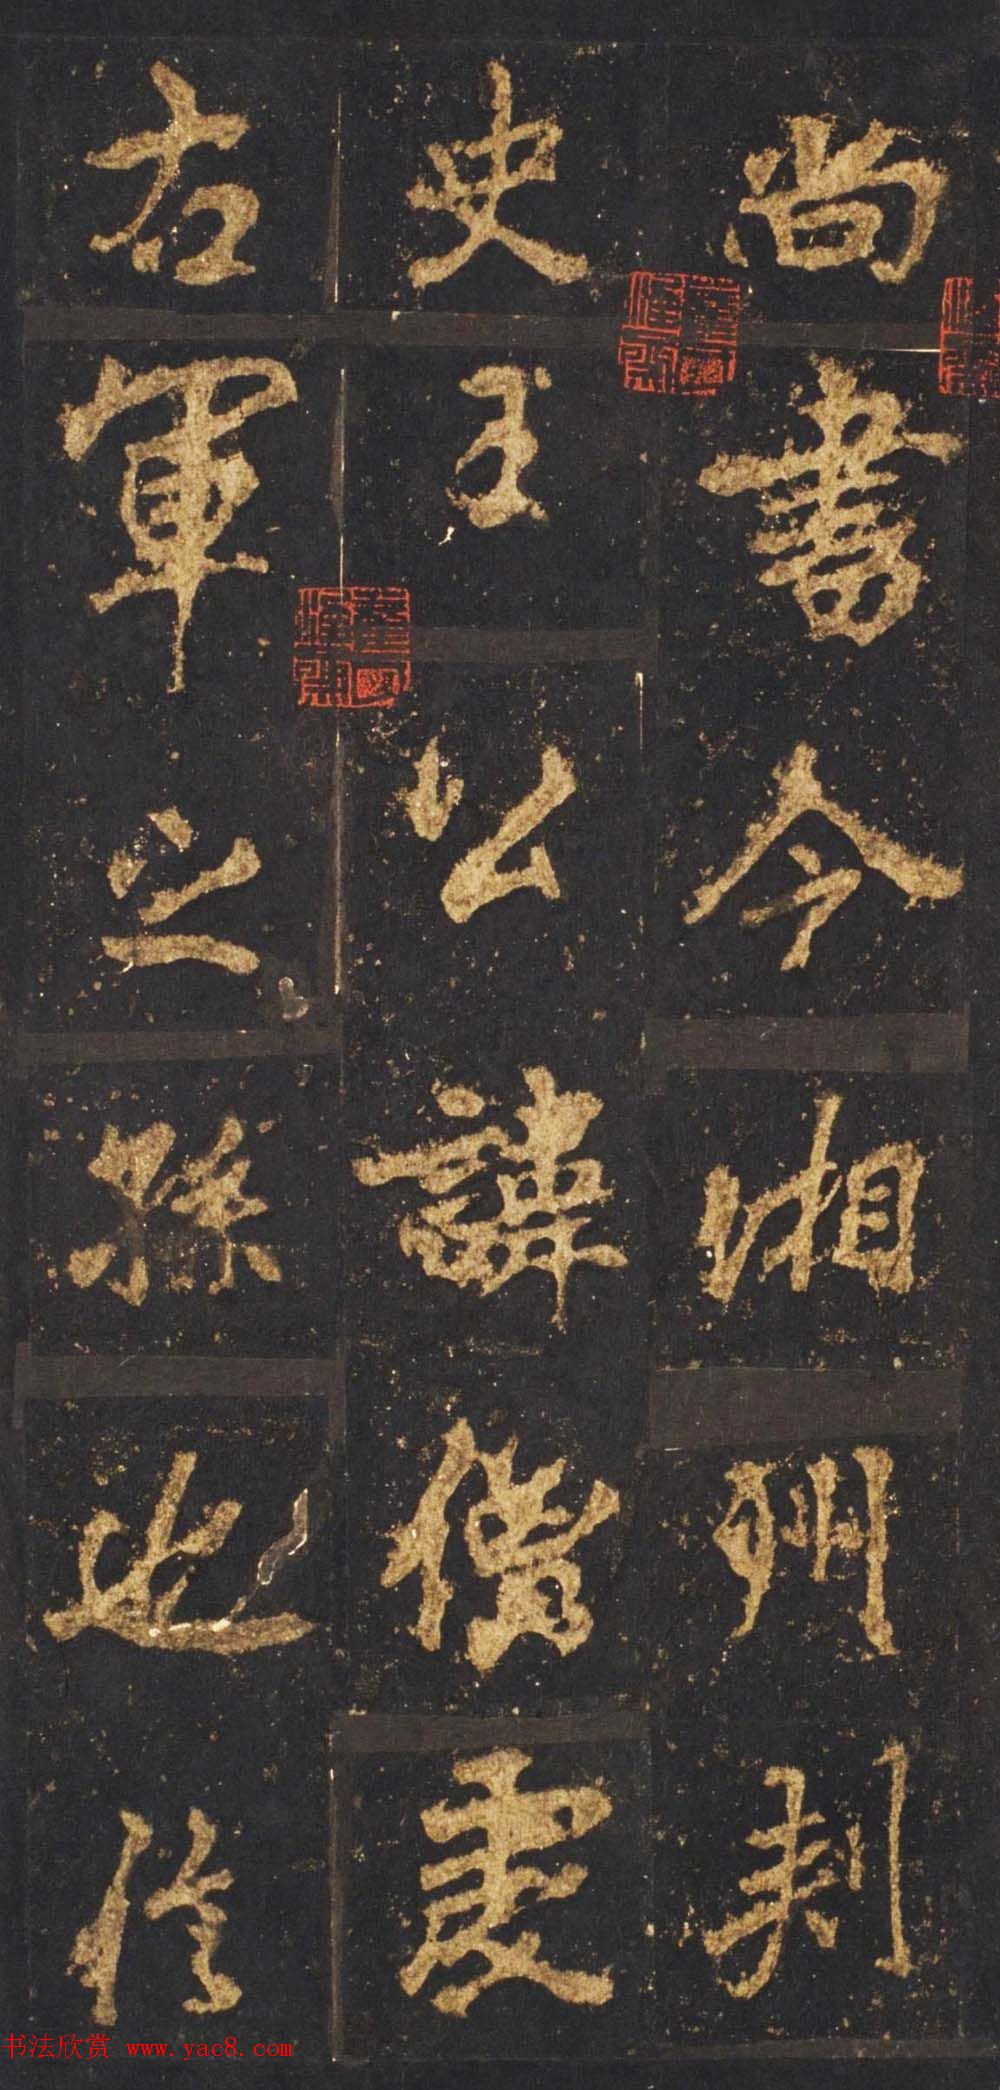 尚書令湘州刺
史王公諱僧虔
右軍之孫也信
书法欣赏 www.yac8.com